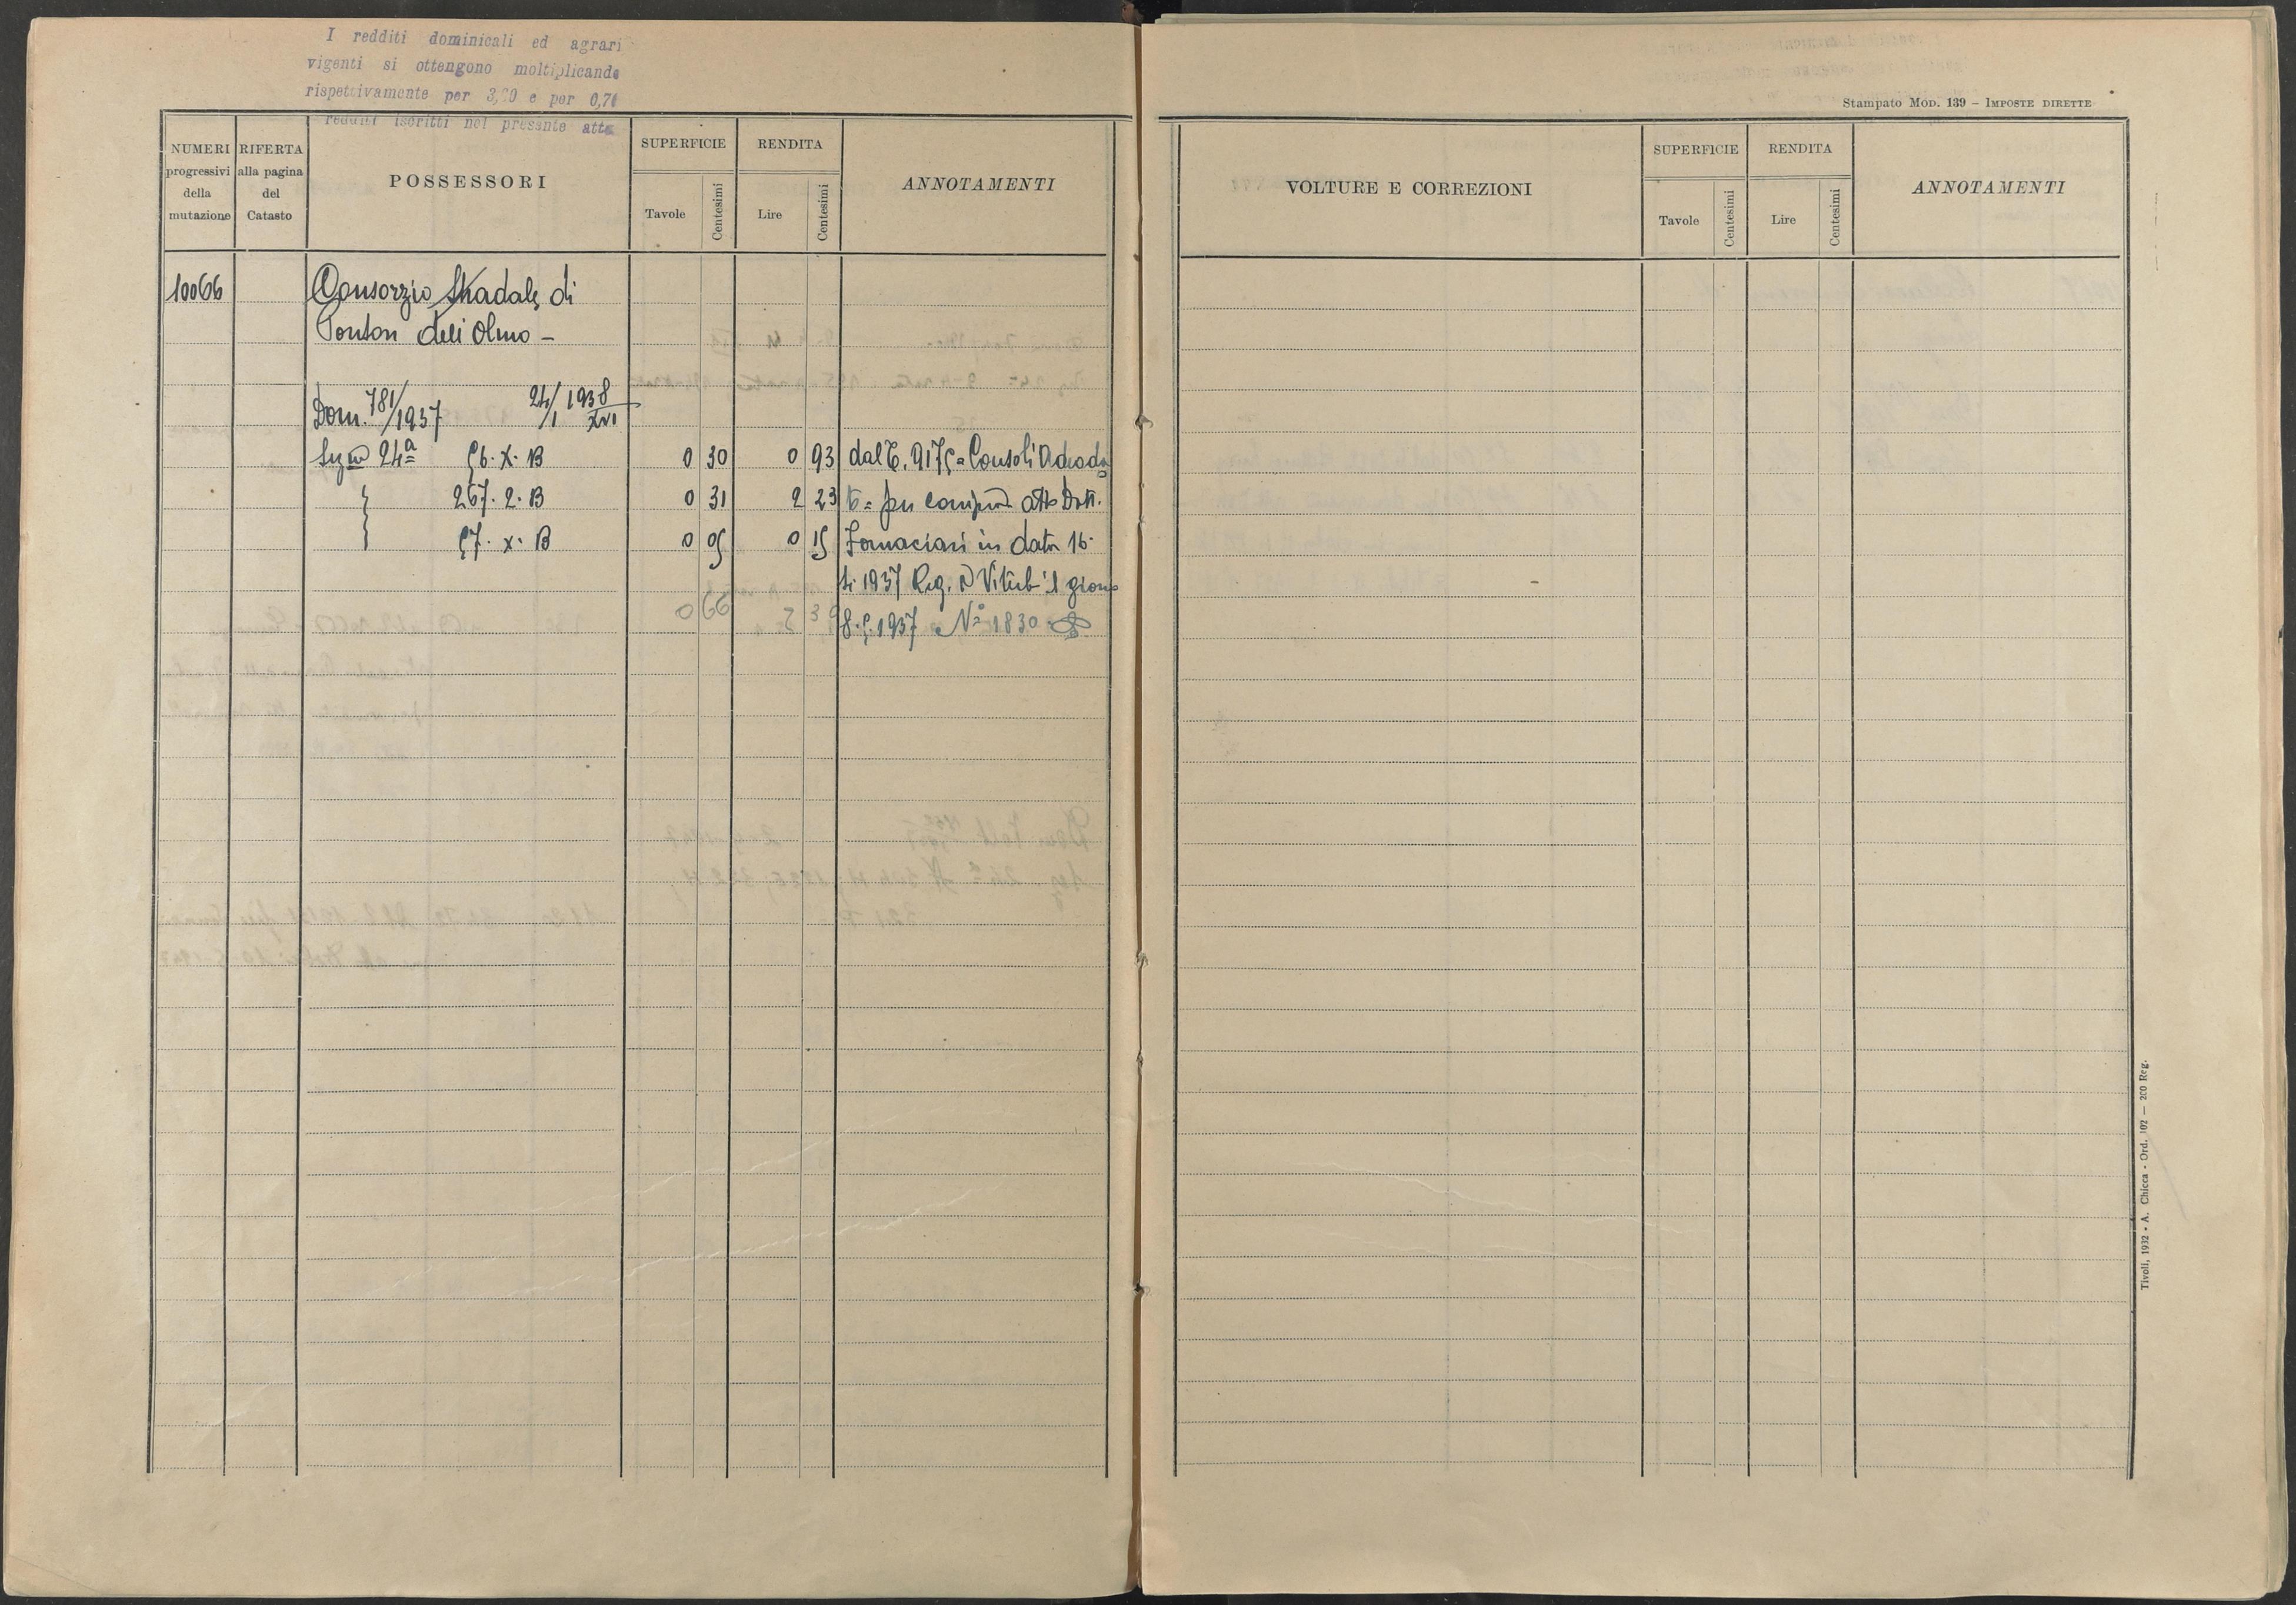 I redditi dominicali ed agrari
vigenti si ottengono moltiplicando
rispettivamente per 3,20 e per 0,70
redditi iscritti nel presente atto
NUMERI progressivi della mutazione
RIFERTA alla pagina del Catasto
POSSESSORI
SUPERFICIE
Tavole
Centesimi
RENDITA
Lire
Centesimi
ANNOTAMENTI
10066
Consorzio Stradale di
Ponton dell Olmo -
Dom. 781/1937 24/1 1938 XVI
Sezne 24ª 56. X. B 0 30 0 93 dal C. 9175 = Consoli Adeodato
267. 2. B 0 31 2 23 per compra atto Dott.
57. X. B 0 05 0 15 Fornaciari in data 16.
4. 1937 Reg. a Viterb il giorno
0 66 8.5.1937 Nº 1830
Stampato MOD. 139 - IMPOSTE DIRETTE
VOLTURE E CORREZIONI
SUPERFICIE
Tavole
Centesimi
RENDITA
Lire
Centesimi
ANNOTAMENTI
Tivoli, 1932 - A. Chicca - Ord. 102 — 200 Reg.